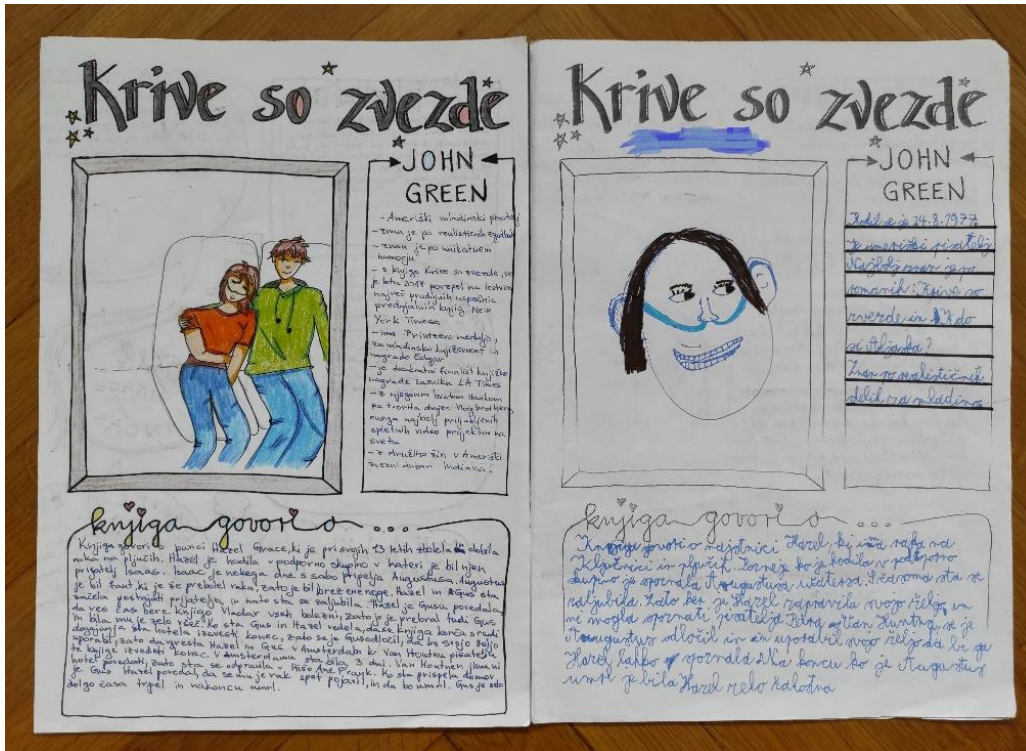 Krive so zvezde
JOHN
GREEN
- Ameriški mladinski pisatelj
- znan je po realističnih zgodbah
- znan je po unikatnem
humorju
- s knjigo Krive so zvezde, se
je leta povzpel na lestvico
največ prodajnih uspešnic
prodajalnih knjig New
York Timesa
- ima Printzovo medaljo,
za mladinsko književnost in
nagrado Edgar
- je dvakratni finalist knjižne
nagrade časnika LA Times
- z njegovim bratom Hankom
pa tvorita Vlogbrothers,
enega najbolj priljubljenih
spletnih video projektov na
svetu
- z družino živi v Ameriški
zvezni državi Indiana.
knjiga govori o ...
Knjiga govori o punci Hazel Grace, ki je pri svojih 13 letih dobila
raka na pljučih. Hazel je hodila v podporno skupino v kateri je bil njen
prijatelj Isaac. Isaac je nekega dne s sabo pripelja Augustusa. Augustus
je bil fant, ki je že prebolel raka, zato je bil brez ene noge. Hazel in Gus sta
postajala prijatelja in nato sta se zaljubila. Hazel je Gusu povedala,
da ves čas bere knjigo Vladar vseh bolezni, zato jo je prebral tudi Gus
in bila mu je zelo všeč. Ko sta Gus in Hazel vedela, da se knjiga konča sredi
dogajanja sta hotela izvesti konec, zato se je Gus odločil, da bo svojo željo
uporabil, zato da gresta Hazel in Gus v Amsterdam k Van Houtnu pisatelju
te knjige izvedeti konec. V Amsterdamu sta bila 3 dni. Van Houtnen jima ni
hotel povedati, zato sta se odpravila v Hišo Ane Frank. Ko sta prispela domov
je Gus Hazel povedal, da se mu je rak spet pojavil, in da bo umrl. Gus je zelo
dolgo časa trpel in nakoncu umrl.
Krive so zvezde
JOHN
GREEN
Rodil se je 24.8.1977
Je ameriški pisatelj
Najbolj znan je po
romanih: Krive so
zvezde in Kdo
si Aljaska?
Znan po realističnih
delih za mladino
knjiga govori o ...
Knjiga govori o najstnici Hazel, ki ima raka na
ščitnici in pljučih. Zornej ko je hodila v podporno
skupino je spoznala Augustusa Watersa. Izaroma sta se
zaljubila. Zato ker je Hazel zapravila svojo željo, in
ni mogla spoznati pisatelja Petra Van Huntna, se je
Augustus odločil in uporabil svojo željo da bi ga
Hazel lahko spoznala. Na koncu ko je Augustus
umrl je bila Hazel zelo žalostna